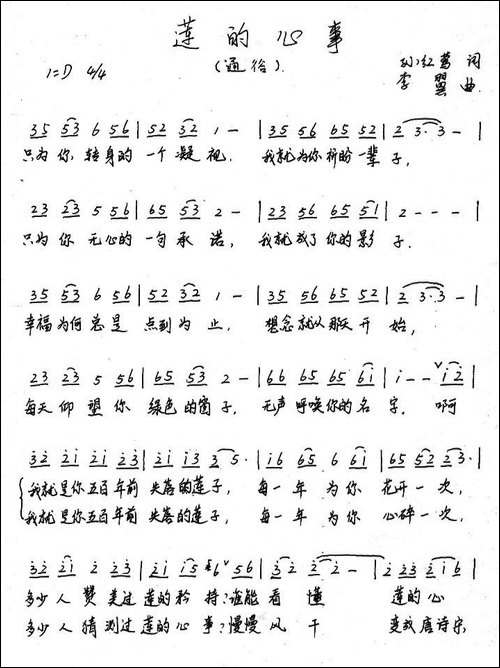 莲的心事
(通俗).
1=D 4/4
孙红莺 词
李翼 曲
35 53 6 56 | 52 32 1 - | 35 56 65 52 | 2 3·3 - |
只为你,转身的一个凝视. 我就为你祈盼一辈子,
23 23 5 56 | 65 53 2 - | 23 56 65 51 | 2 - - - |
只为你无心的一句承诺, 我就成了你的影子.
35 53 6 56 | 52 32 1 - | 35 56 65 52 | 2 3·3 - |
幸福为何总是点到为止, 想念就从那天开始,
23 23 5 56 | 65 53 2 - | 66 65 65 6i | i - - i2 |
每天仰望你绿色的窗子, 无声呼唤你的名字. 啊
32 2i 2i 23 | 2i i3 3 5· | i6 65 6 6i | 65 52 23· |
我就是你五百年前失落的莲子, 每一年为你花开一次,
我就是你五百年前失落的莲子, 每一年为你心碎一次,
32 2i 2 23 | 2i i5 #6 56 | 32 2 2 - | 2 223 2i6 |
多少人赞美过莲的矜持?谁能看懂 莲的心
多少人猜测过莲的心事?慢慢风干 变成唐诗宋,